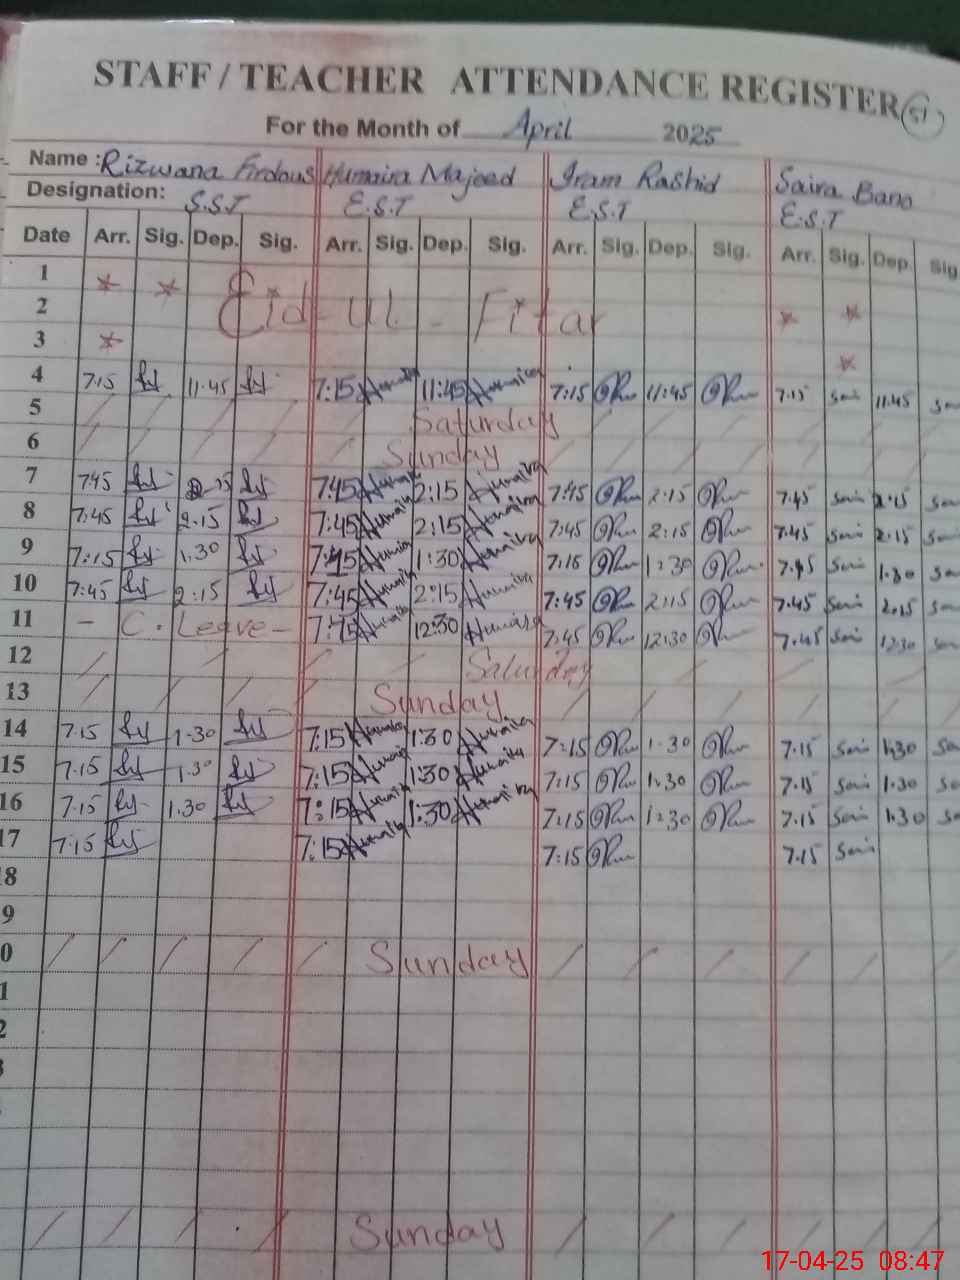 STAFF / TEACHER ATTENDANCE REGISTER 51
For the Month of April 2025
Name : Rizwana Firdous Humaira Majeed Iram Rashid Saira Bano
Designation: S.S.T E.S.T E.S.T E.S.T
Date Arr. Sig. Dep. Sig. Arr. Sig. Dep. Sig. Arr. Sig. Dep. Sig. Arr. Sig. Dep. Sig
1
2 Eid-ul-Fitar
3
4 7.15 11.45 7:15 Humaira 11:45 Humaira 7:15 11:45 7.15 11.45
5 Saturday
6 Sunday
7 7.45 2.15 7:45 Humaira 2:15 Humaira 7:45 2:15 7.45 2.15
8 7:45 2.15 7:45 Humaira 2:15 Humaira 7:45 2:15 7.45 2.15
9 7:15 1.30 Humaira 1:30 Humaira 7:15 1:30 1.30
10 7:45 2:15 7:45 Humaira 2:15 Humaira 7:45 2:15 7.45 2.15
11 - C. Leave - Humaira 12:30 Humaira 7:45 12:30 7.45 12.30
12 Saturday
13 Sunday
14 7.15 1.30 7:15 Humaira 1:30 Humaira 7:15 1.30 7.15 1.30
15 7.15 1.30 7:15 Humaira 1:30 Humaira 7:15 1:30 7.15 1.30
16 7.15 1.30 7:15 Humaira 1:30 Humaira 7:15 1:30 7.15 1.30
17 7.15 7:15 Humaira 7:15 7.15
8
9
0 Sunday
1
2
Sunday
17-04-25 08:47